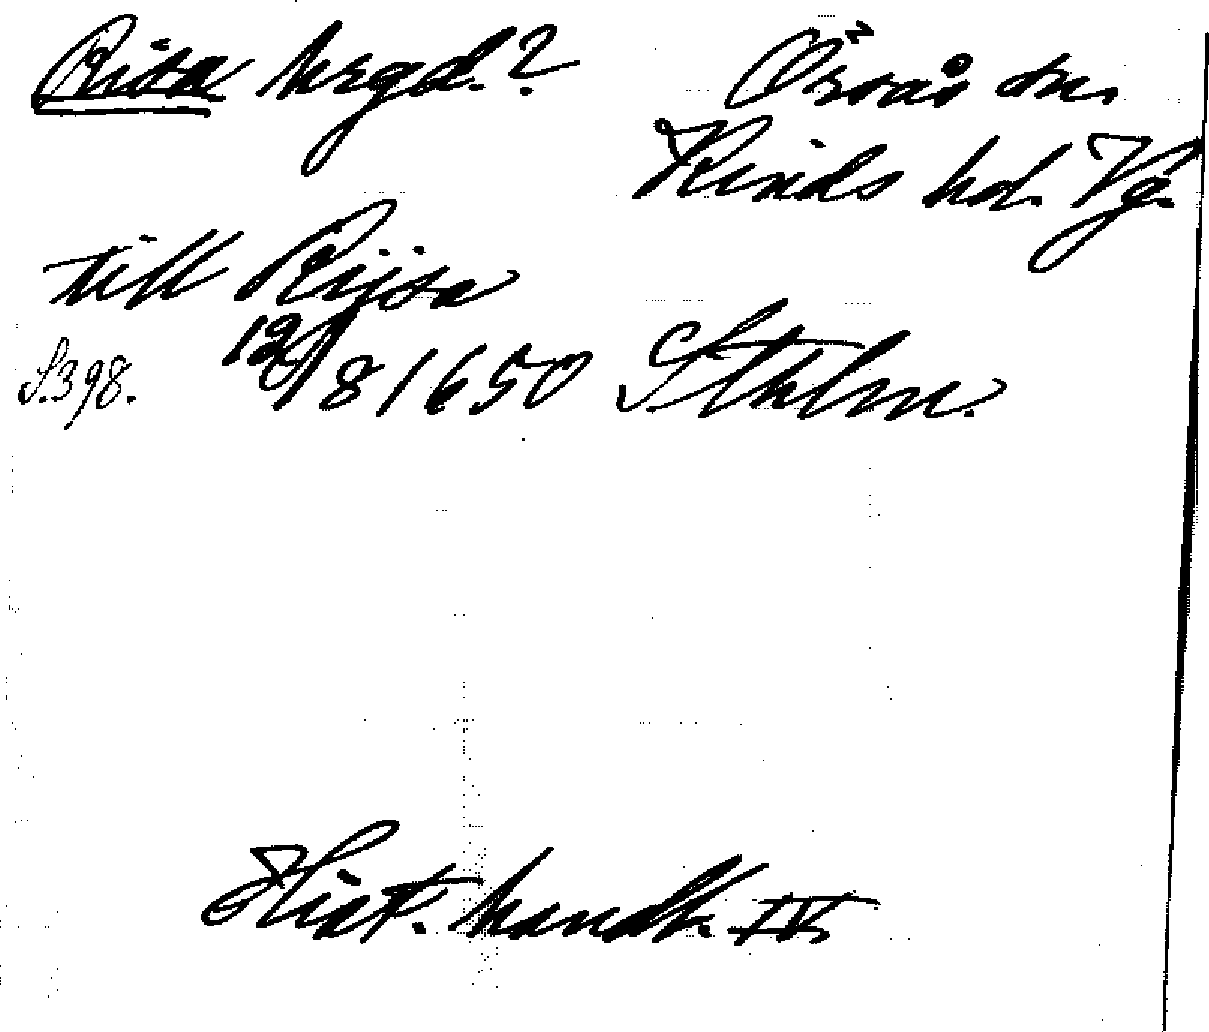 Risa hrgd.? Örsås sn.
Kinds hd. Vg.
till Rijsa
S. 398. 12/8 1650 Sthlm.
Hist. handl. IV.